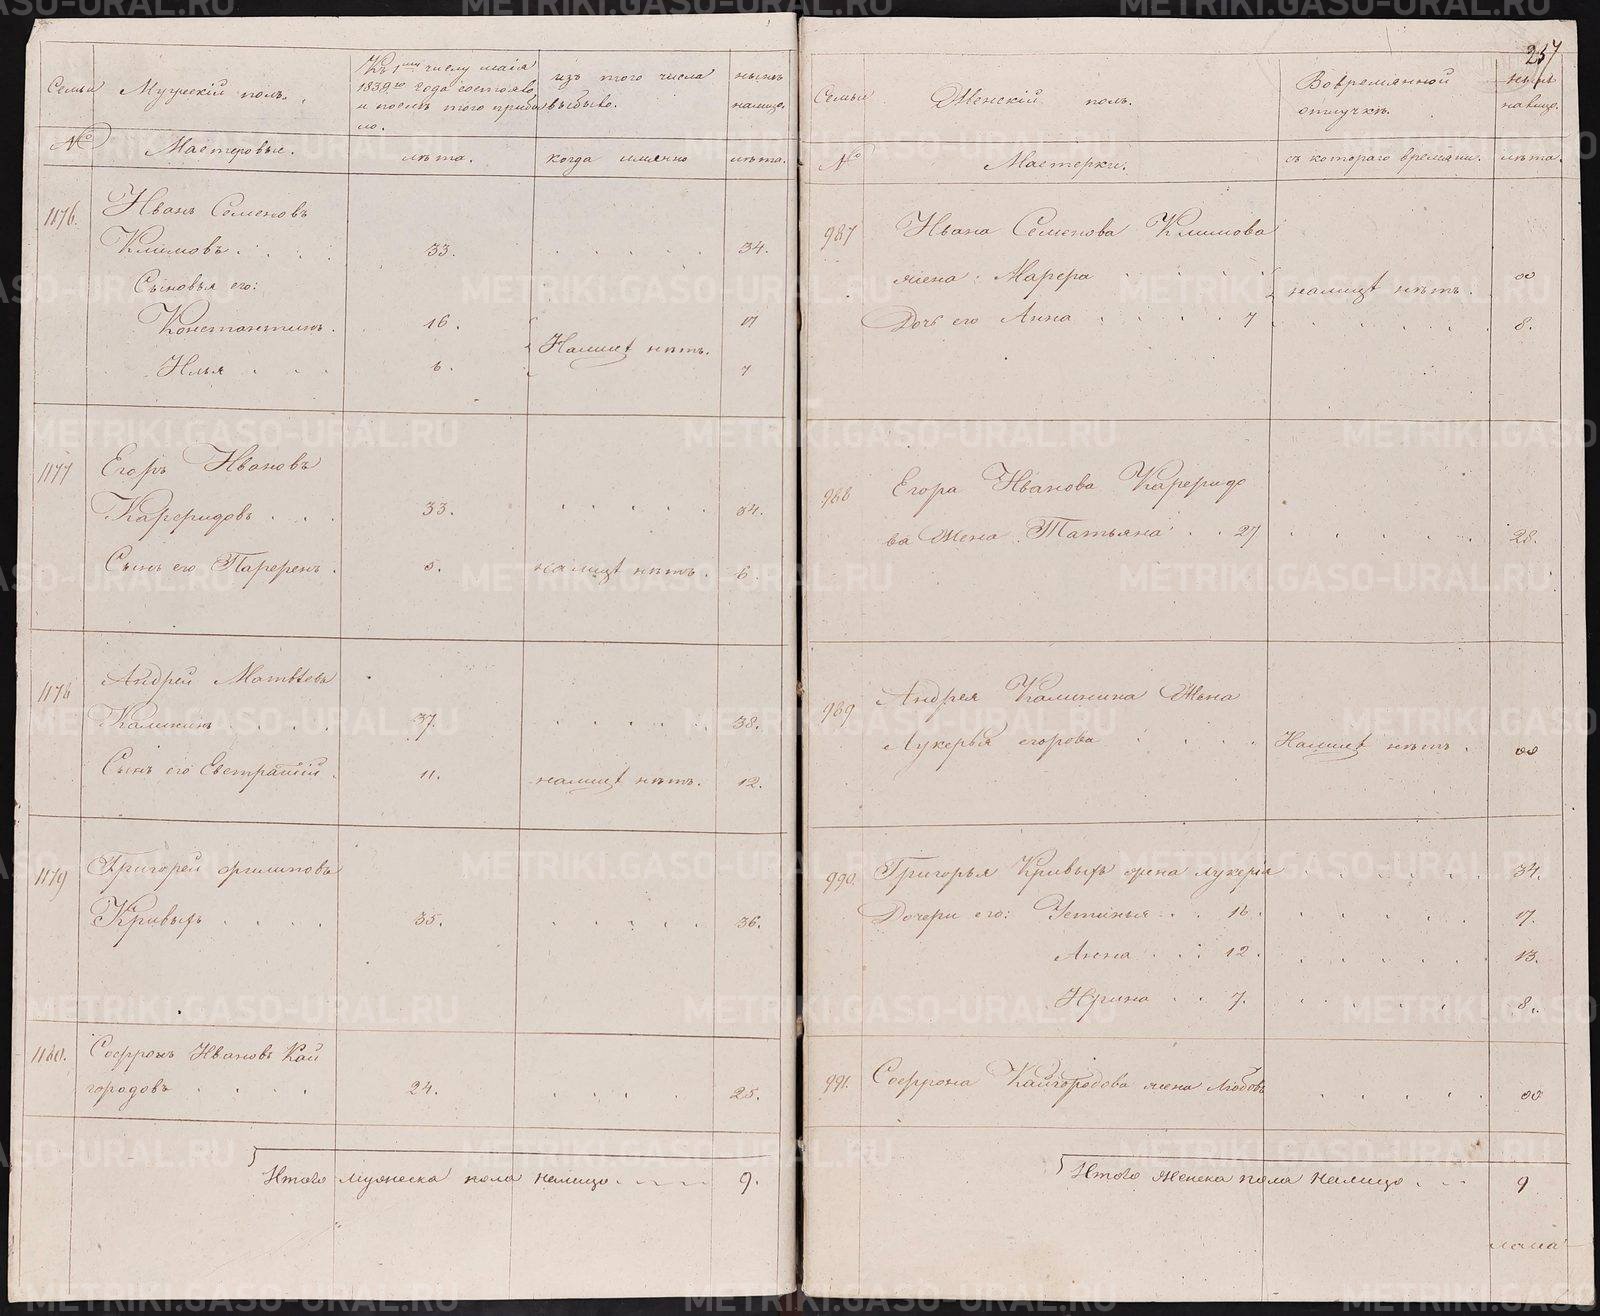 257
Семьи
Мужескій полъ.
Къ 1му числу маія
1839го года состояло
и послѣ того прибы
ло.
изъ того числа
выбыло.
нынѣ
налицо.
№
Мастеровые.
лѣта.
когда имянно
лѣта.
1176.
Иванъ Семеновъ
Климовъ . . . . 33. . . . . . 34.
Сыновья его:
Константинъ. 16. 17
Налицѣ нѣтъ.
Илья . . . 6. 7
1177
Егоръ Ивановъ
Карфидовъ . . . 33. . . . . . 34.
Сынъ его Парфенъ. 5. налицѣ нѣтъ. 6.
1178
Андрей Матвѣевъ
Калининъ . . . . 37. . . . . . 38.
Сынъ его Евстратій. 11. налицѣ нѣтъ. 12.
1179
Григорей Филиповъ
Кривыхъ . . . . 35. . . . . . 36.
1180.
Софронъ Ивановъ Кай
городовъ . . . . 24. . . . . 25.
Итого мужеска пола налицо . . . . 9.
Семьи
Женскій полъ.
Во времянной
отлучкѣ.
нынѣ
налицо.
№
Мастерки.
съ котораго времяни.
лѣта.
987
Ивана Семенова Климова
жена Марфа . . . . . налицѣ нѣтъ. 00
Дочь его Анна . . . . 7 . . . . . . 8.
988
Егора Иванова Карфидо
ва жена Татьяна . . 27 . . . . . . 28.
989
Андрея Калинина жена
Лукерья егорова . . . . Налицѣ нѣтъ. 00
990.
Григорья Кривыхъ жена лукерія . . . . . . 34.
Дочери его: Устинья . . 16. . . . . . 17.
Анна . . . 12. . . . . . 13.
Ирина . . 7. . . . . . 8.
991.
Софрона Кайгородова жена Любовь . . . . . 00
Итого женска пола налицо . . . 9
METRIKI.GASO-URAL.RU